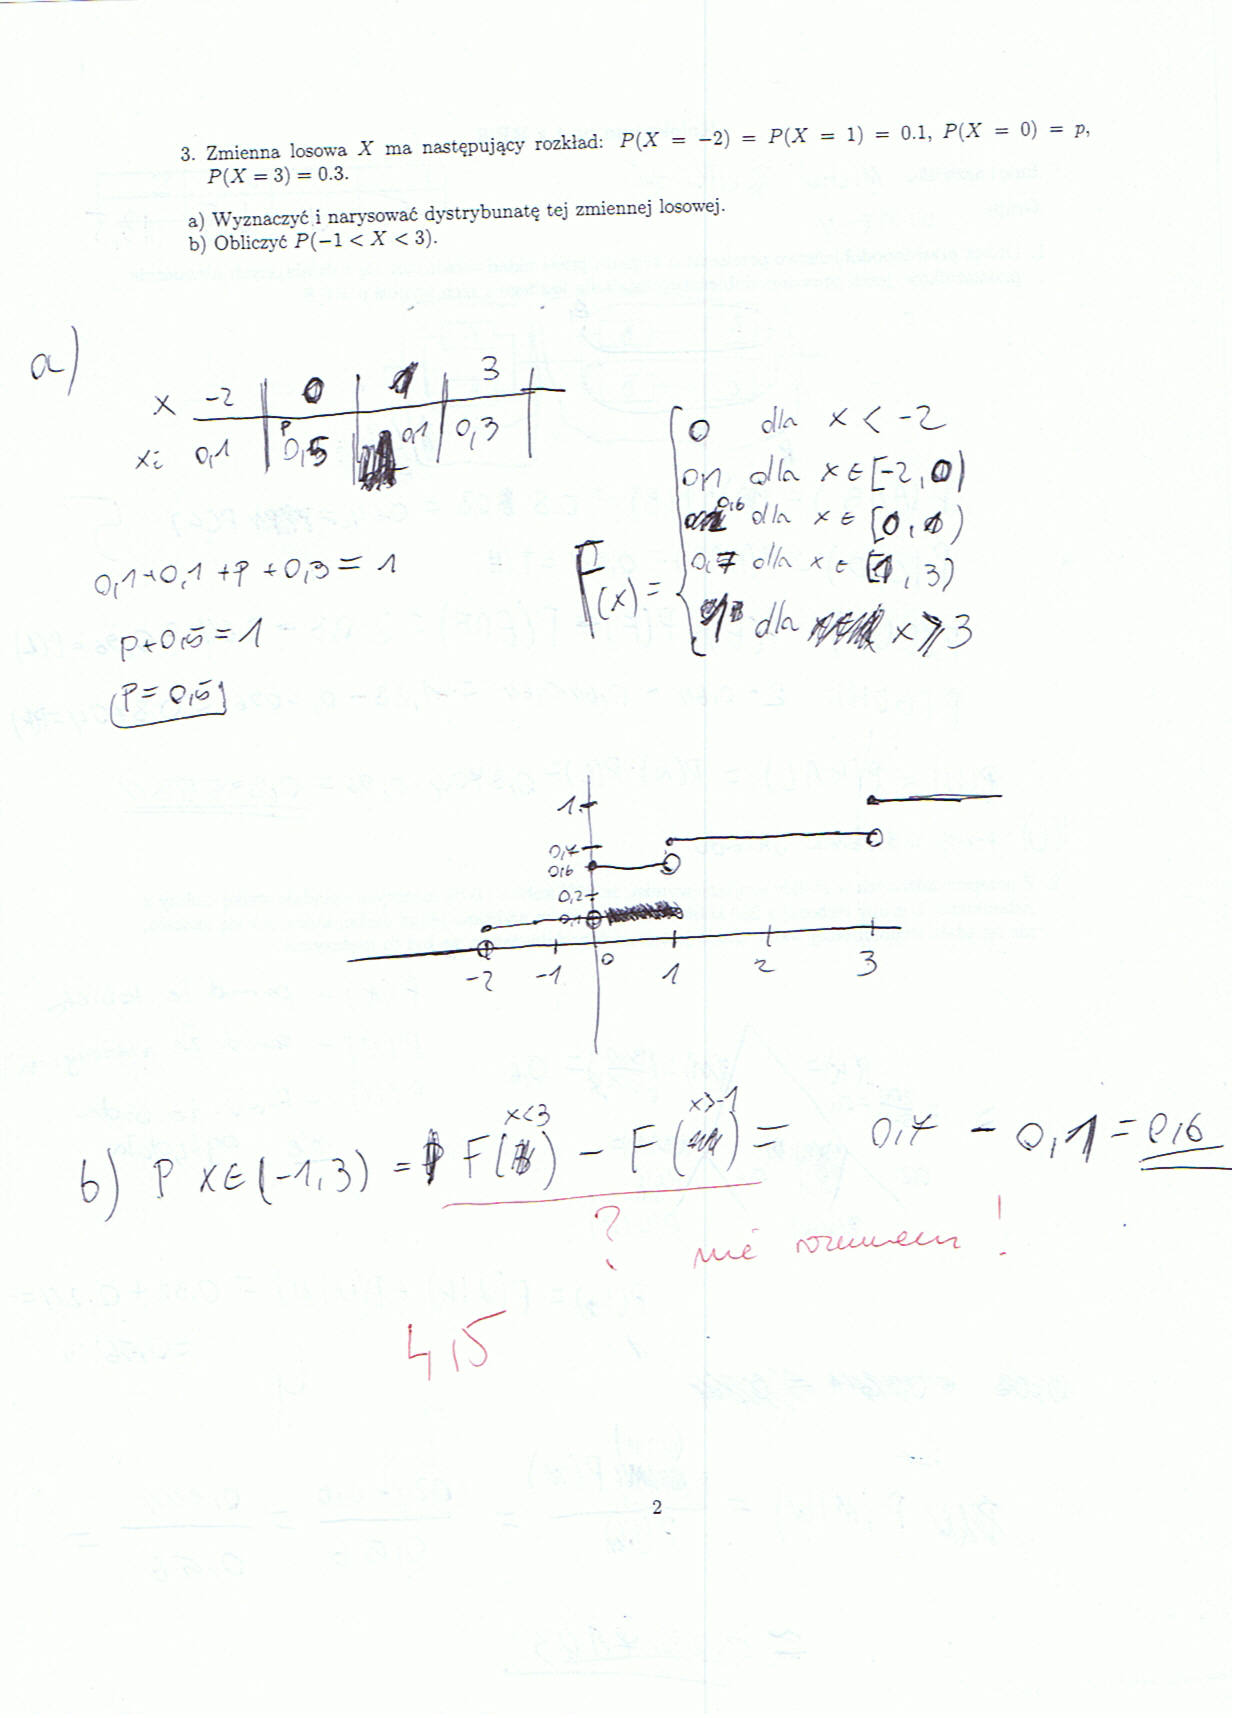 3. Zmienna losowa X ma następujący rozkład: P(X = −2) = P(X = 1) = 0.1, P(X = 0) = p,
P(X = 3) = 0.3.
a) Wyznaczyć i narysować dystrybuantę tej zmiennej losowej.
b) Obliczyć P(−1 < X < 3).
a)
x -2 0 1 3
xi 0,1 p 0,5 0,1 0,3
0,1+0,1+p+0,3=1
p+0,5=1
p=0,5
F(x)=
0 dla x < -2
0,1 dla x∈[-2,0)
0,6 dla x∈[0,1)
0,7 dla x∈[1,3)
1 dla x⩾3
1
0,7
0,6
0,2
0,1
-2 -1 0 1 2 3
b) P x∈(-1,3) = F(x<3) − F(x>-1) = 0,7 − 0,1 = 0,6
? nie rozumiem!
4,5
2